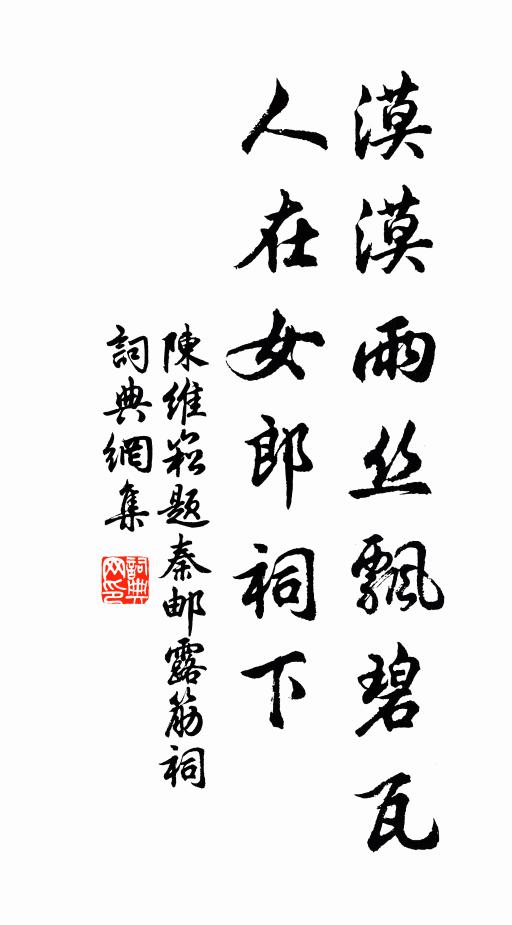 漠漠雨丝飄碧瓦
人在女郎祠下
陳維崧题秦邮露筋祠
詞典網集
詞典网印